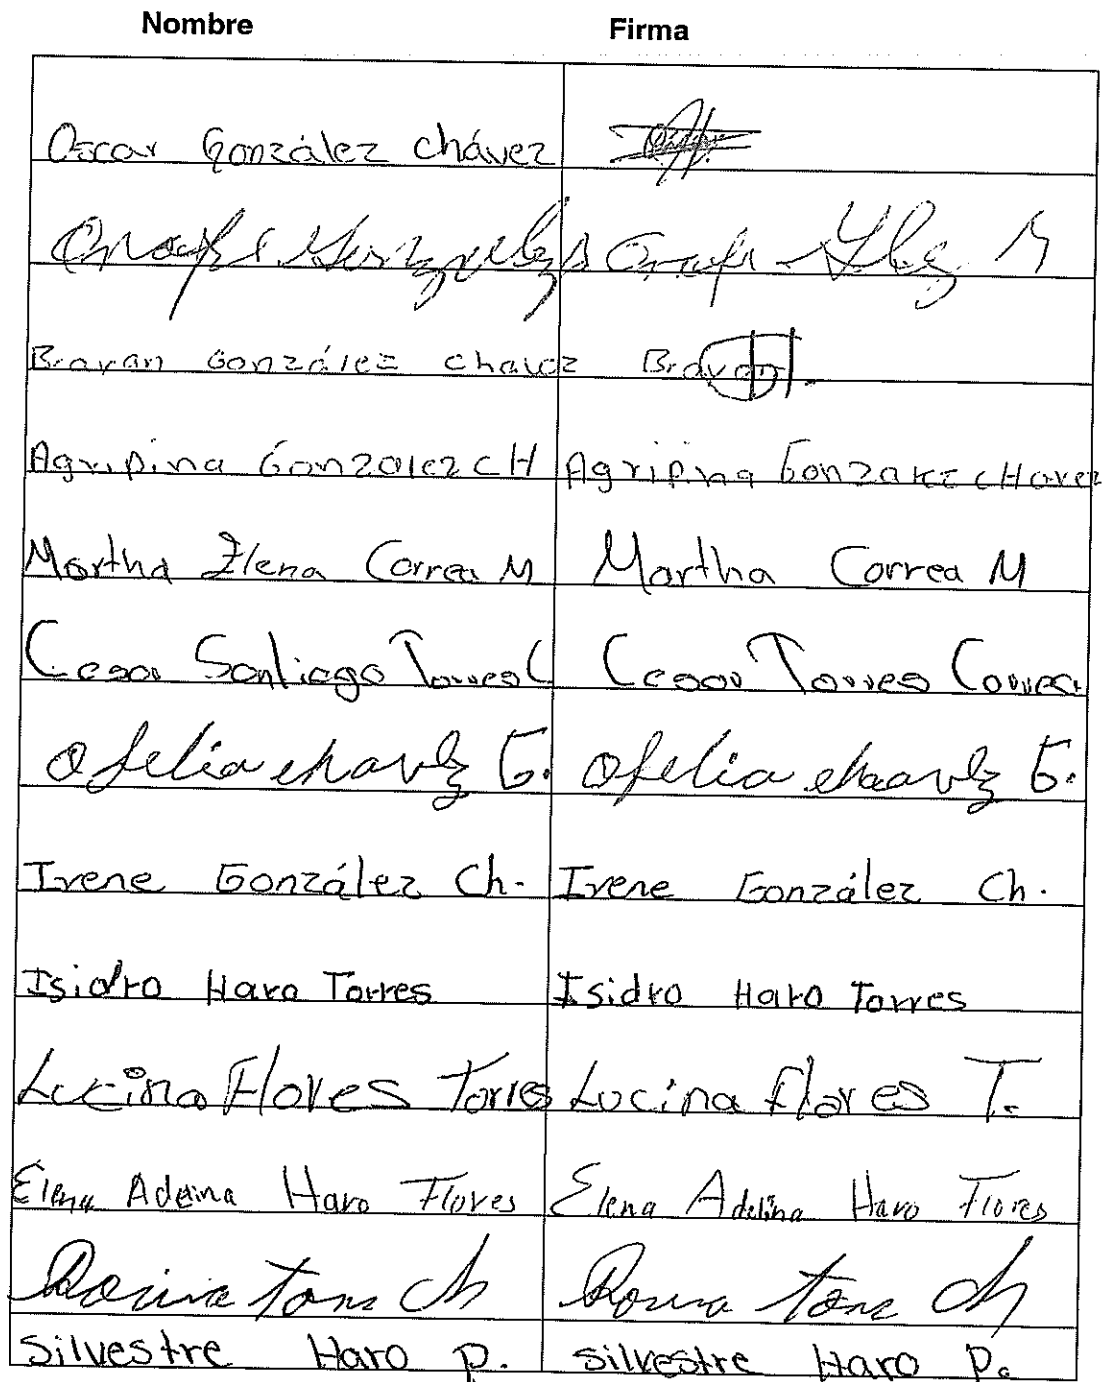 Nombre Firma
Oscar González Chávez
González
Brayan González Chavez Brayan
Agripina Gonzalez CH Agripina Gonzalez CHavez
Martha Elena Correa M Martha Correa M
Cesar Santiago Torres C Cesar Torres Correa
Ofelia chavez G. Ofelia chavez G.
Irene González Ch. Irene González Ch.
Isidro Haro Torres Isidro Haro Torres
Lucina Flores Torres Lucina Flores T.
Elena Adelina Haro Flores Elena Adelina Haro Flores
Ch Ch
Silvestre Haro P. Silvestre Haro P.